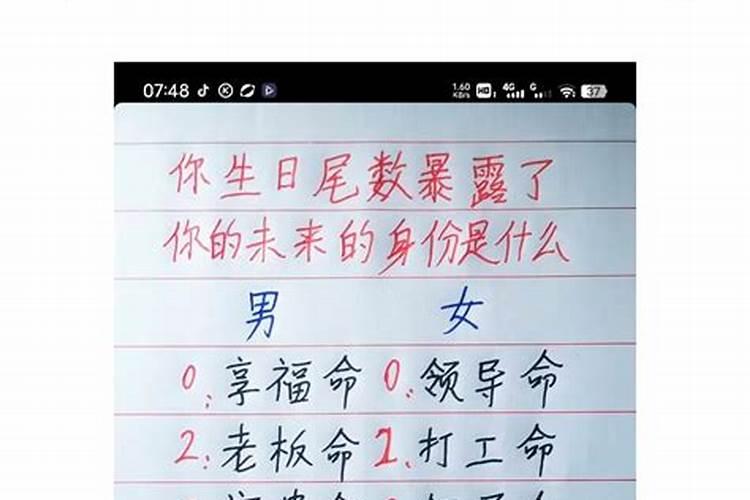 07:48 1.60 KB/s HD 4G G 37
你生日尾数暴露了
你的未来的身份是什么
男 女
0:享福命 0:领导命
2:老板命 1、打工命